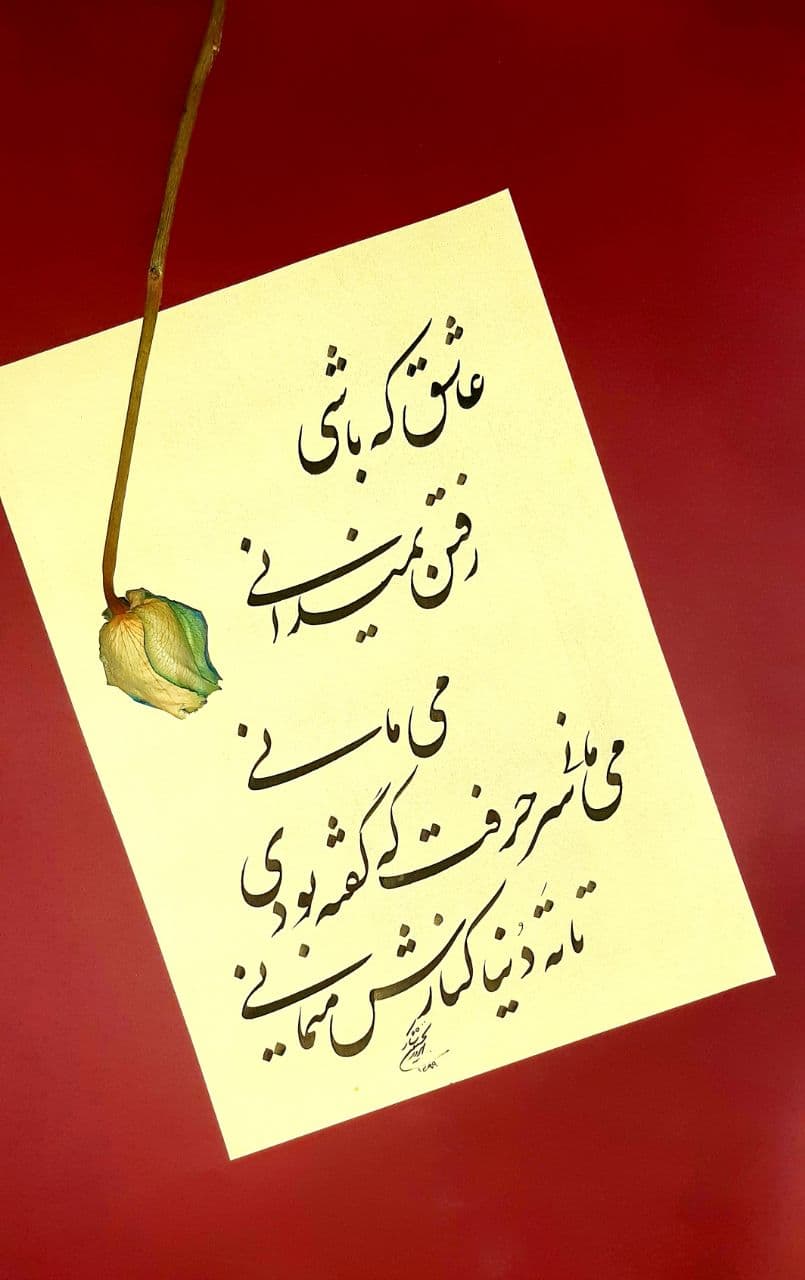 عاشق که باشی
رفتن نمیدانی
می مانی
می مانی سر حرفت که گفته بودی
تا تَه دُنیا کنارش میمانی